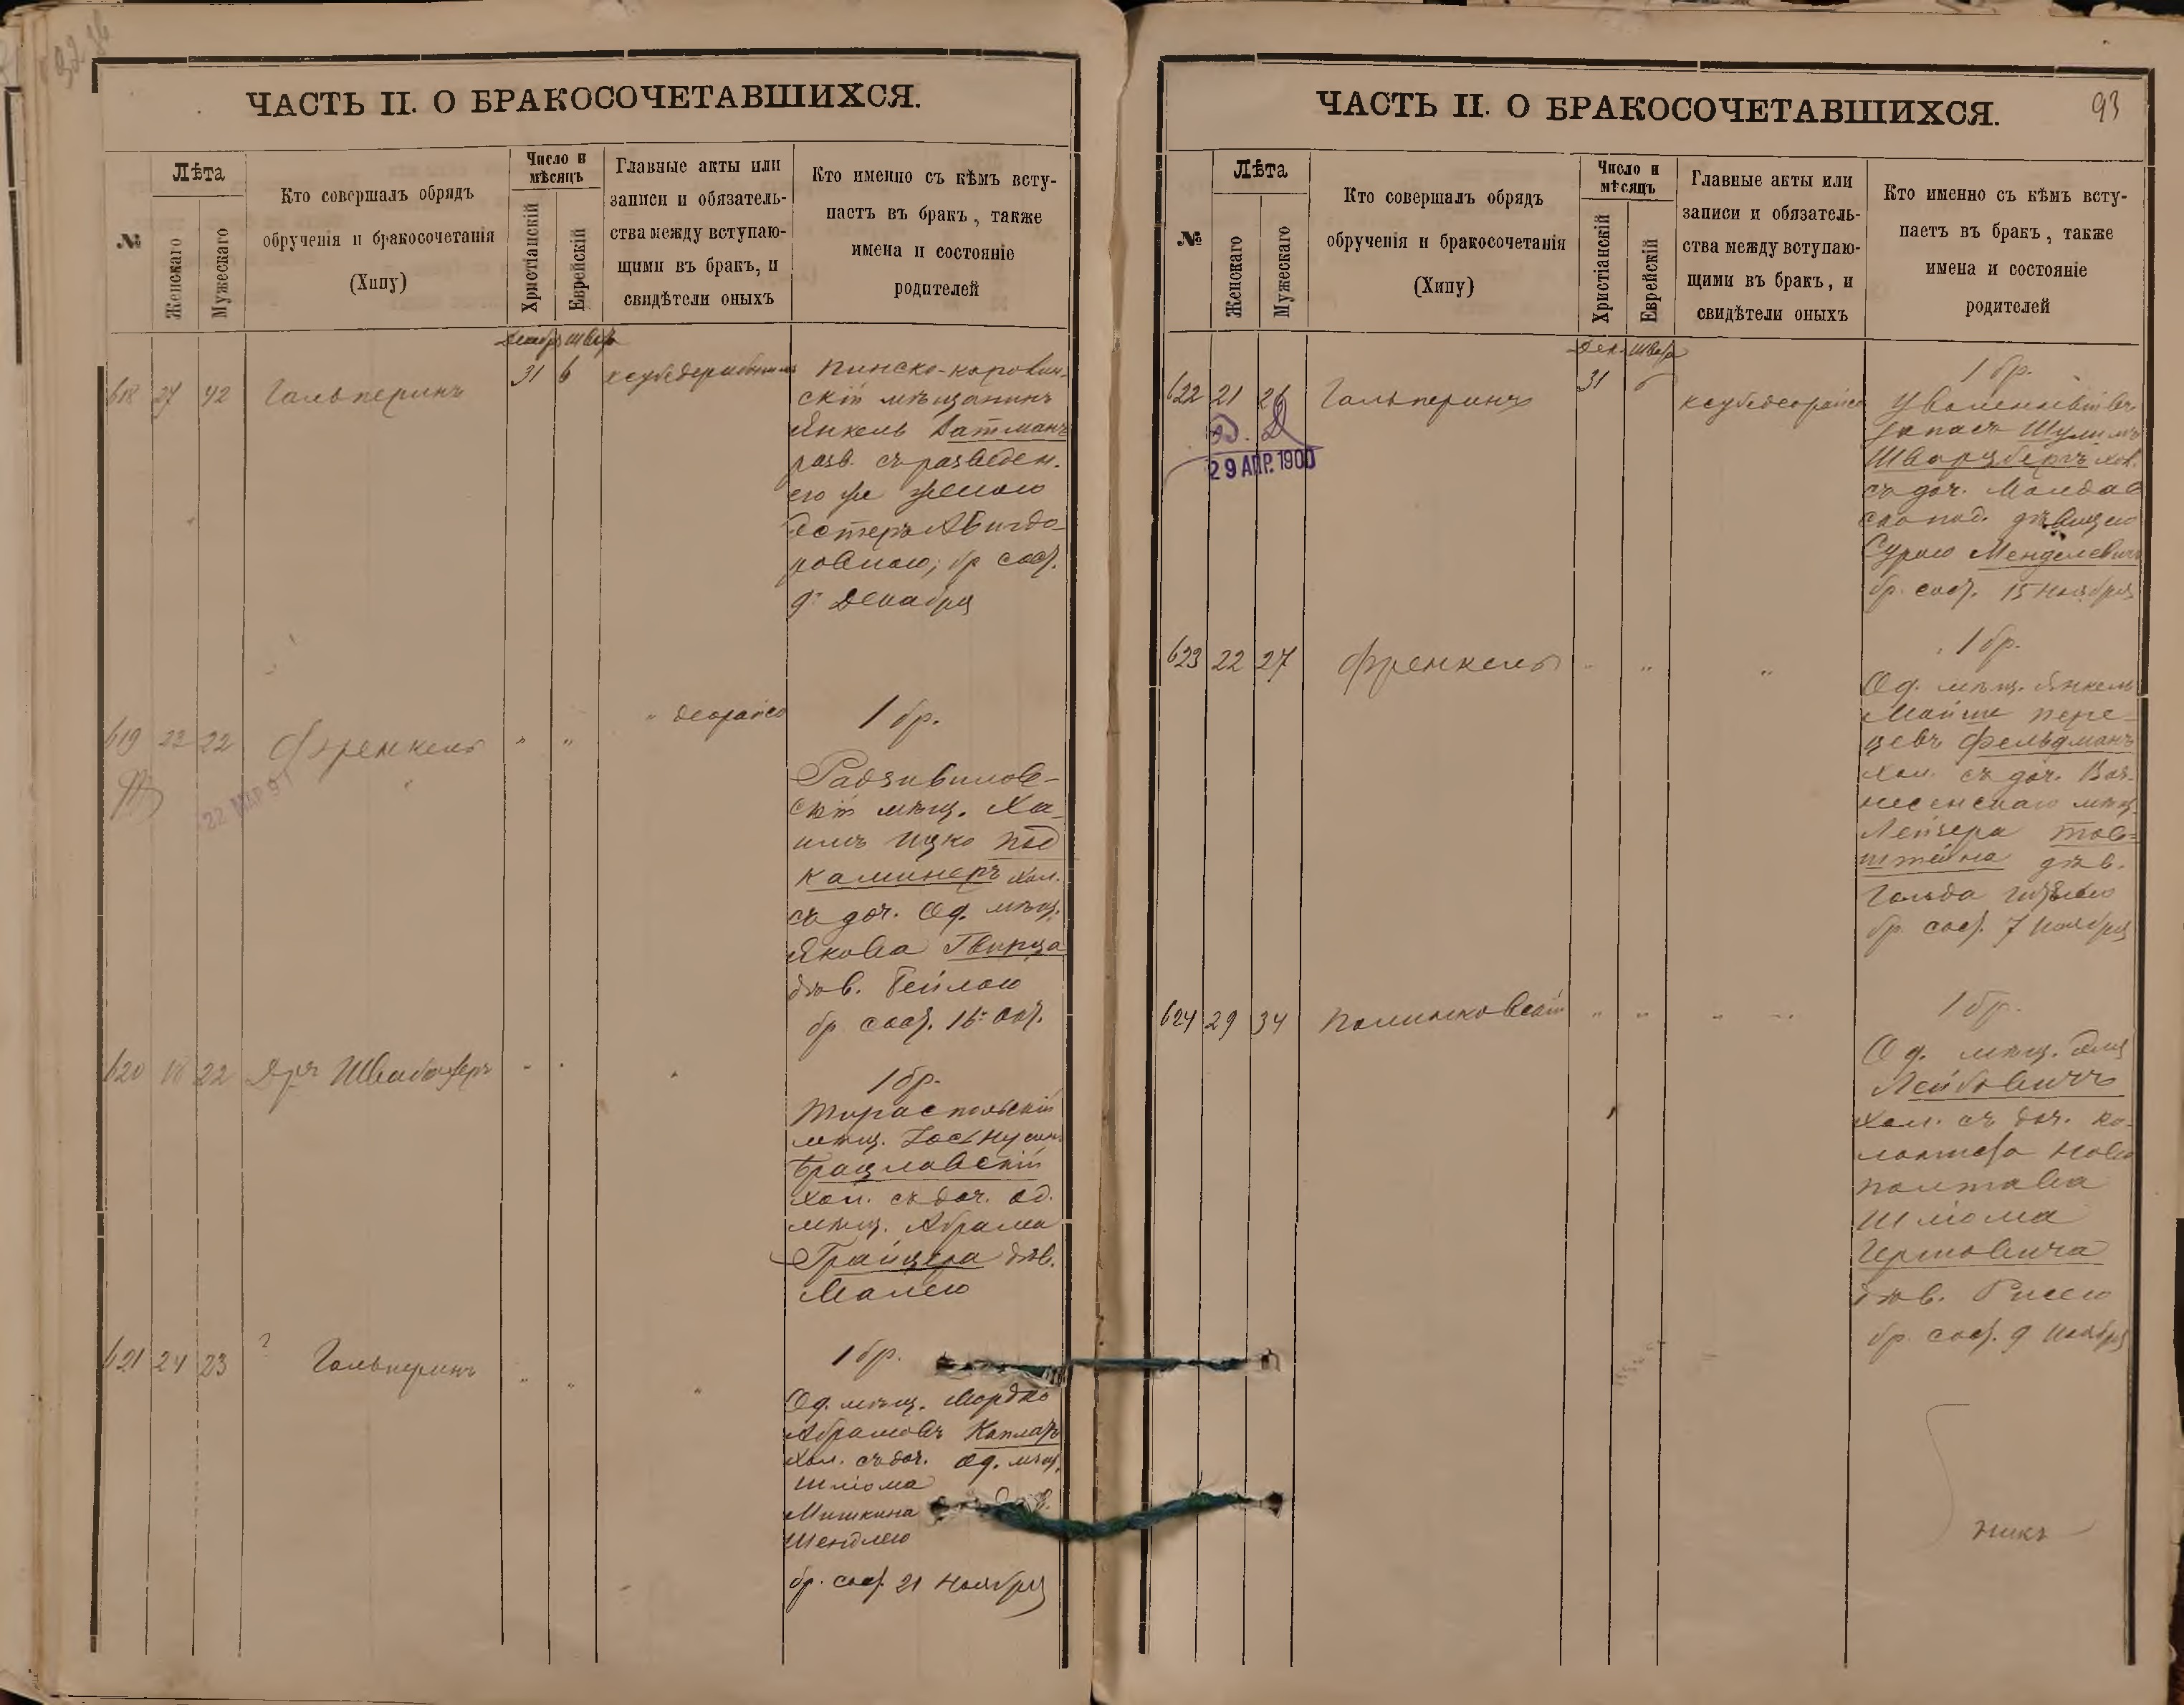 ЧАСТЬ II. О БРАКОСОЧЕТАВШИХСЯ.
№
Лѣта
Женскаго
Мужескаго
Кто совершалъ обрядъ
обрученія и бракосочетанія
(Хипу)
Число и
мѣсяцъ
Христіанскій
Еврейскій
Главные акты или
записи и обязатель-
ства между вступаю-
щими въ бракъ, и
свидѣтели оныхъ
Кто именно съ кѣмъ всту-
паетъ въ бракъ, также
имена и состояніе
родителей
618 27 42 Гальперинъ
31 6
Пинско-каровин-
скій мѣщанинъ
Янкель Ватманъ
разв. съ разведен.
его же женою
Эстеръ Авигдо-
ровною; бр сост.
9 Декабря
619 22 22 Френкель " "
" деорайсо
22 МАР 91
1 бр.
Радзивилов-
скій мѣщ. Ха-
имъ Ицко Под
каминеръ хол.
съ доч. Од. мѣщ.
Якова Гвирца
дѣв. Бейлою
бр сост. 16 Окт.
620 18 22 Д-ръ Швабахеръ
1 бр.
Тираспольскій
мѣщ. Іос Нусинъ
Брацлавскій
хол. съ доч. од.
мѣщ. Абрама
Грайцера дѣв.
Малею
621 24 23 ? Гальперинъ " " "
1 бр.
Од. мѣщ. Мордко
Абрамовъ Капланъ
хол. съ доч. Од. мѣщ.
Шлiома
Мишкина
Шейндлею
бр. сост. 21 Ноября
ЧАСТЬ II. О БРАКОСОЧЕТАВШИХСЯ.
93
№
Лѣта
Женскаго
Мужескаго
Кто совершалъ обрядъ
обрученія и бракосочетанія
(Хипу)
Число и
мѣсяцъ
Христіанскій
Еврейскій
Главные акты или
записи и обязатель-
ства между вступаю-
щими въ бракъ, и
свидѣтели оныхъ
Кто именно съ кѣмъ всту-
паетъ въ бракъ, также
имена и состояніе
родителей
622 21 26 Гальперинъ
31 6
ксубедеорайсо
29 АПР. 1900
1 бр.
Уволенный въ
запасъ Шулимъ
Шварцбергъ хол.
съ доч. Молдав
ско под. дѣвицею
Сурою Менделевичъ
бр. сост. 15 Ноября
623 22 27 Френкель " " "
1 бр.
Од. мѣщ. Янкель
Мойше Пере-
цевъ Фельдманъ
хол. съ доч. Воз-
несенскаго мѣщ.
Лейзера Тов-
штейна дѣв.
Гольда
бр. сост. 7 Ноября
624 29 34 " " " "
1 бр.
Од. мѣщ.
Лейбовичъ
хол. съ доч. ко-
лониста Ново
Полтавка
Шлiома
Гершовича
дѣв.
бр. сост. 9 Ноября